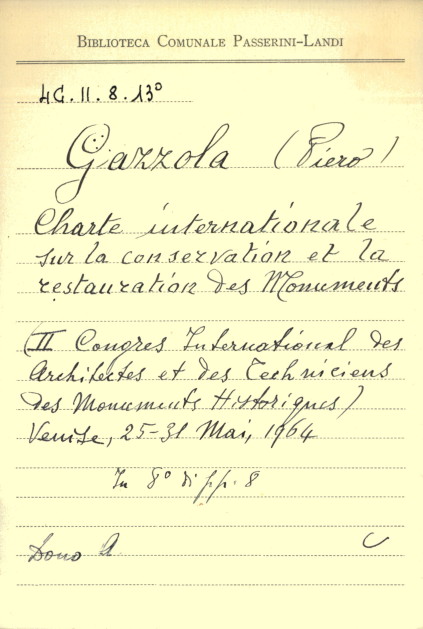 BIBLIOTECA COMUNALE PASSERINI-LANDI
4C. II. 8. 13°
Gazzola (Piero)
Charte internationale
sur la conservation et la
restauration des Monuments
(II Congres International des
Architectes et des Techniciens
des Monuments Historiques)
Venise, 25-31 Mai, 1964
In 8° di pp. 8
Dono A
C